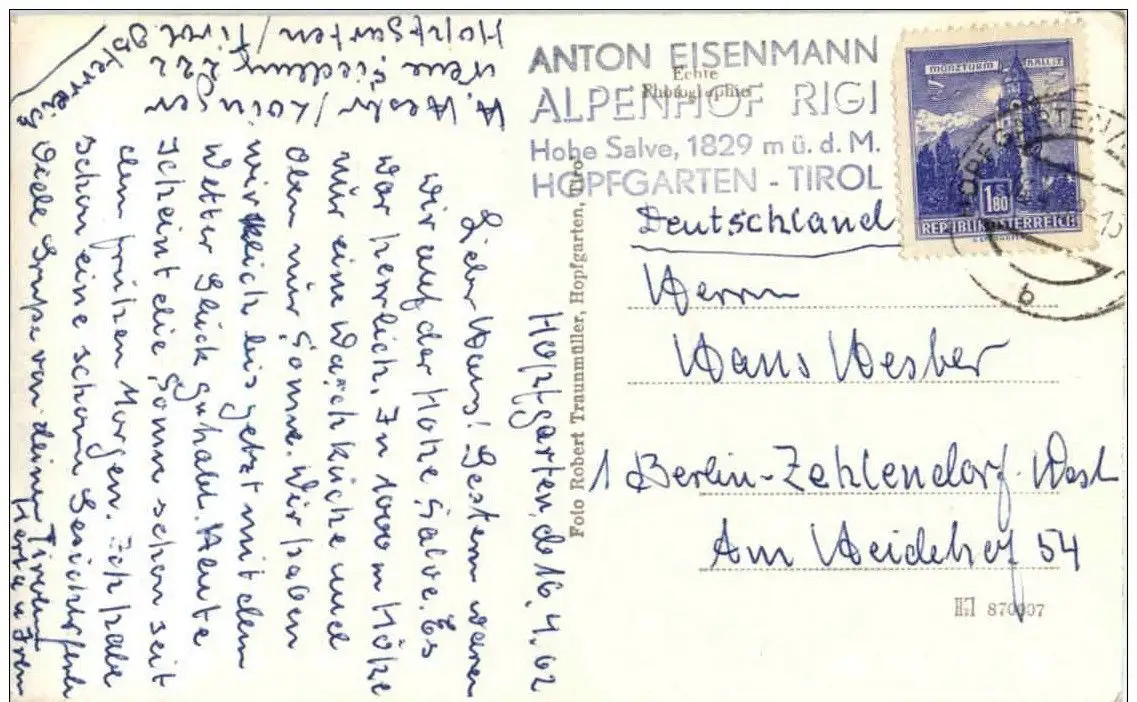 Hopfgarten, d. 16.4.62
Lieber Hans! Gestern waren
wir auf der Hohe Salve. Es
war herrlich. In 1000 m Höhe
nur eine Waschküche und
oben nur Sonne. Wir haben
wirklich bis jetzt mit dem
Wetter Glück gehabt. Heute
scheint die Sonne schon seit
dem frühen Morgen. Ich habe
schon eine schöne Gesichtsfarbe
Viele Grüße von deinen Tirolern
Herta u.
H. Wesbr /
Neue Siedlung 222
Hopfgarten / Tirol
Österreich
ANTON EISENMANN
ALPENHOF RIGI
Hohe Salve, 1829 m ü. d. M.
HOPFGARTEN - TIROL
Echte
Photographie
Foto Robert Traunmüller, Hopfgarten, Tirol
MÜNZTURM HALL I.T.
1.80
REPUBLIK ÖSTERREICH
HOPFGARTEN
b
Deutschland
Herrn
Hans Wesber
1 Berlin-Zehlendorf-West
Am Heidehof 54
870007